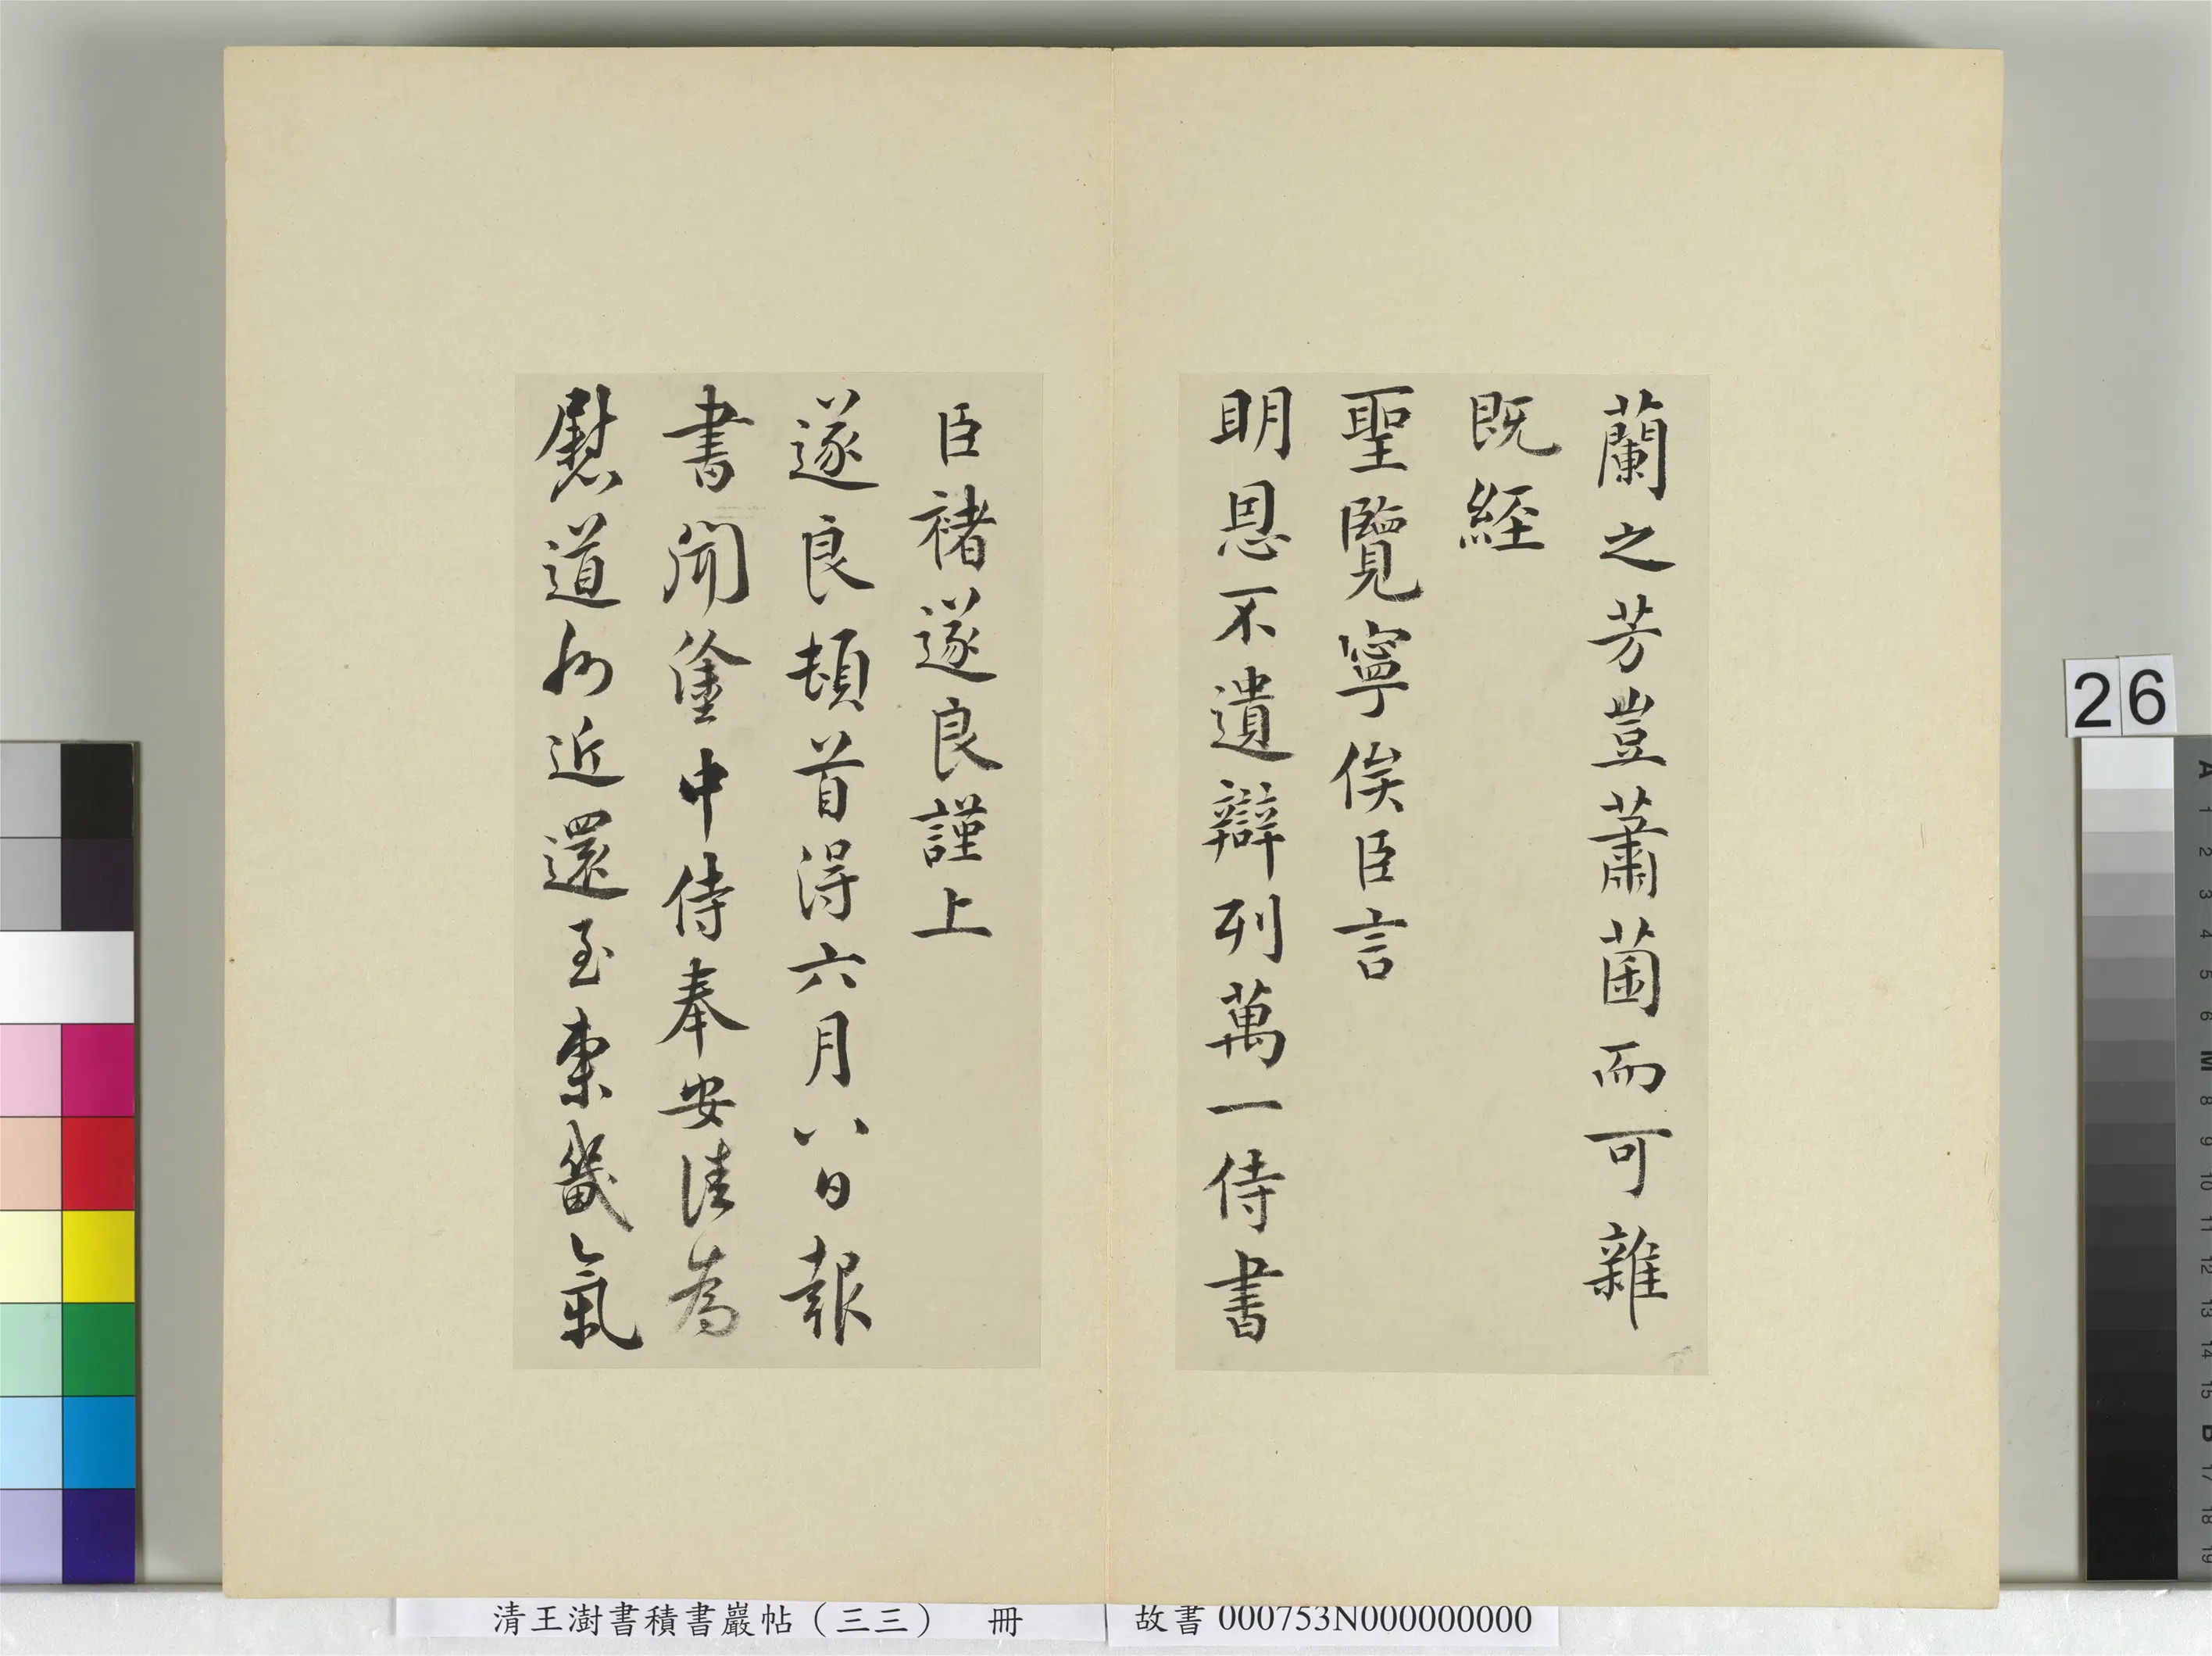 蘭之芳豈蕭菌而可雜
既経
聖覽寧俟臣言
明恩不遺辯列萬一侍書
臣褚遂良謹上
遂良頓首得六月八日報
書聞塗中侍奉安佳為
慰道州近還至東畿氣
26
清王澍書積書巖帖（三三） 冊
故書 000753N000000000
A
1
2
3
4
5
6
M
8
9
10
11
12
13
14
15
B
17
18
19